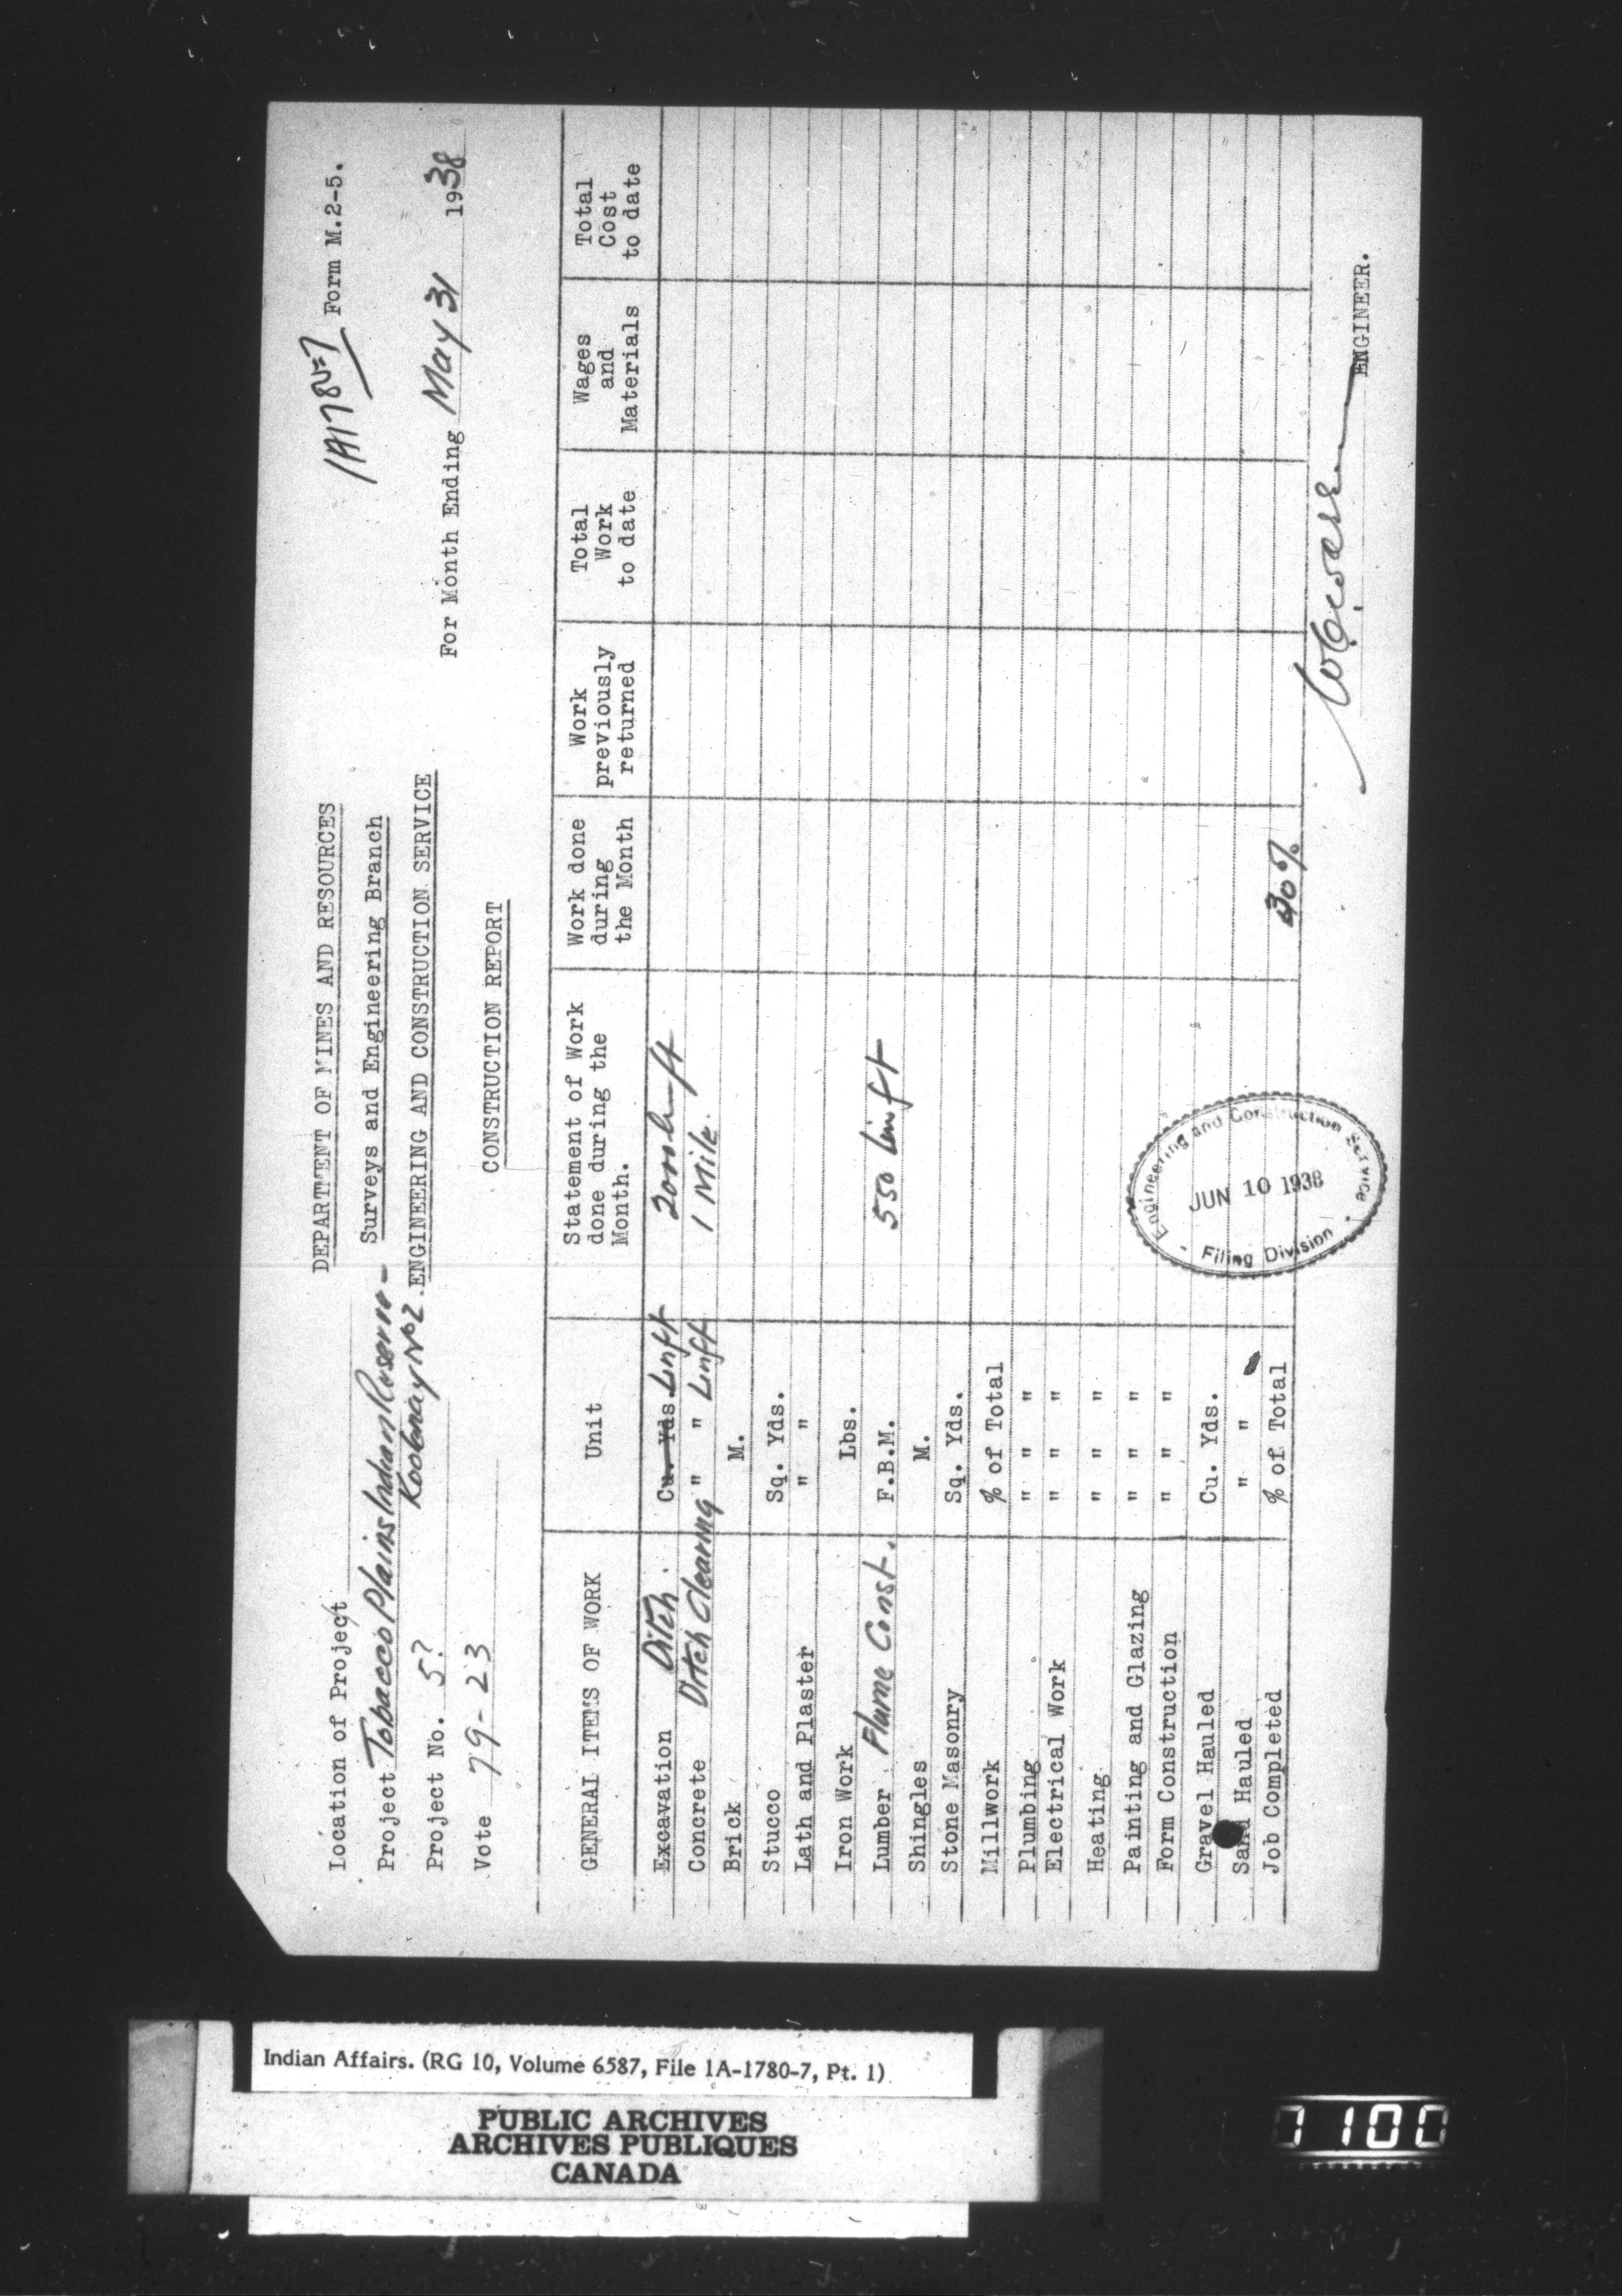 1A1780-7 Form M.2-5.
DEPARTMENT OF MINES AND RESOURCES
Location of Project
Surveys and Engineering Branch
Project Tobacco Plains Indian Reserve -
Kootenay No 2.
ENGINEERING AND CONSTRUCTION SERVICE
Project No. 5?
For Month Ending May 31 1938
Vote 79-23
CONSTRUCTION REPORT
GENERAL ITEMS OF WORK Unit Statement of Work done during the Month. Work done during the Month Work previously returned Total Work to date Wages and Materials Total Cost to date
Excavation Ditch. Cu. Yds. Lin ft 2000 lin ft
Concrete Ditch Clearing " " Lin ft 1 Mile.
Brick M.
Stucco Sq. Yds.
Lath and Plaster " "
Iron Work Lbs.
Lumber Flume Const. F.B.M. 550 Lin ft
Shingles M.
Stone Masonry Sq. Yds.
Millwork % of Total
Plumbing " " "
Electrical Work " " "
Heating " " "
Painting and Glazing " " "
Form Construction " " "
Gravel Hauled Cu. Yds.
Sand Hauled " "
Job Completed % of Total 30%
ENGINEER.
Engineering and Construction Service
JUN 10 1938
Filing Division
Indian Affairs. (RG 10, Volume 6587, File 1A-1780-7, Pt. 1)
PUBLIC ARCHIVES
ARCHIVES PUBLIQUES
CANADA
1100